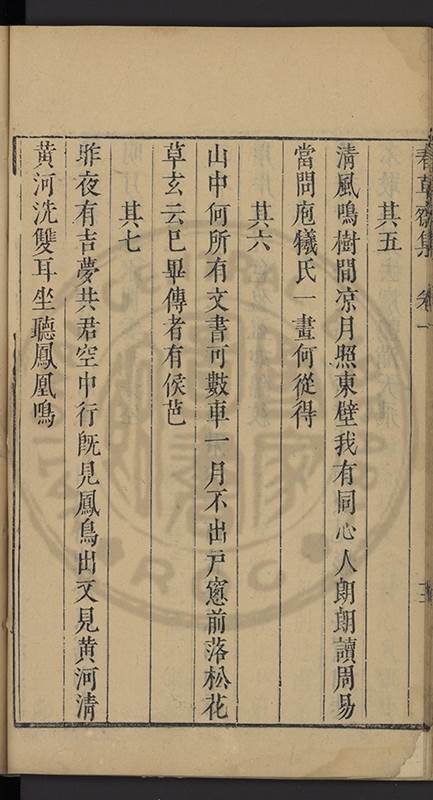 春草齋集 卷一
其五
清風鳴樹間凉月照東壁我有同心人朗朗讀周易
當問庖犧氏一畫何從得
其六
山中何所有文書可數車一月不出戶窻前落松花
草玄云巳畢傳者有侯芭
其七
昨夜有吉夢共君空中行旣見鳳鳥出又見黃河清
黃河洗雙耳坐聽鳳凰鳴